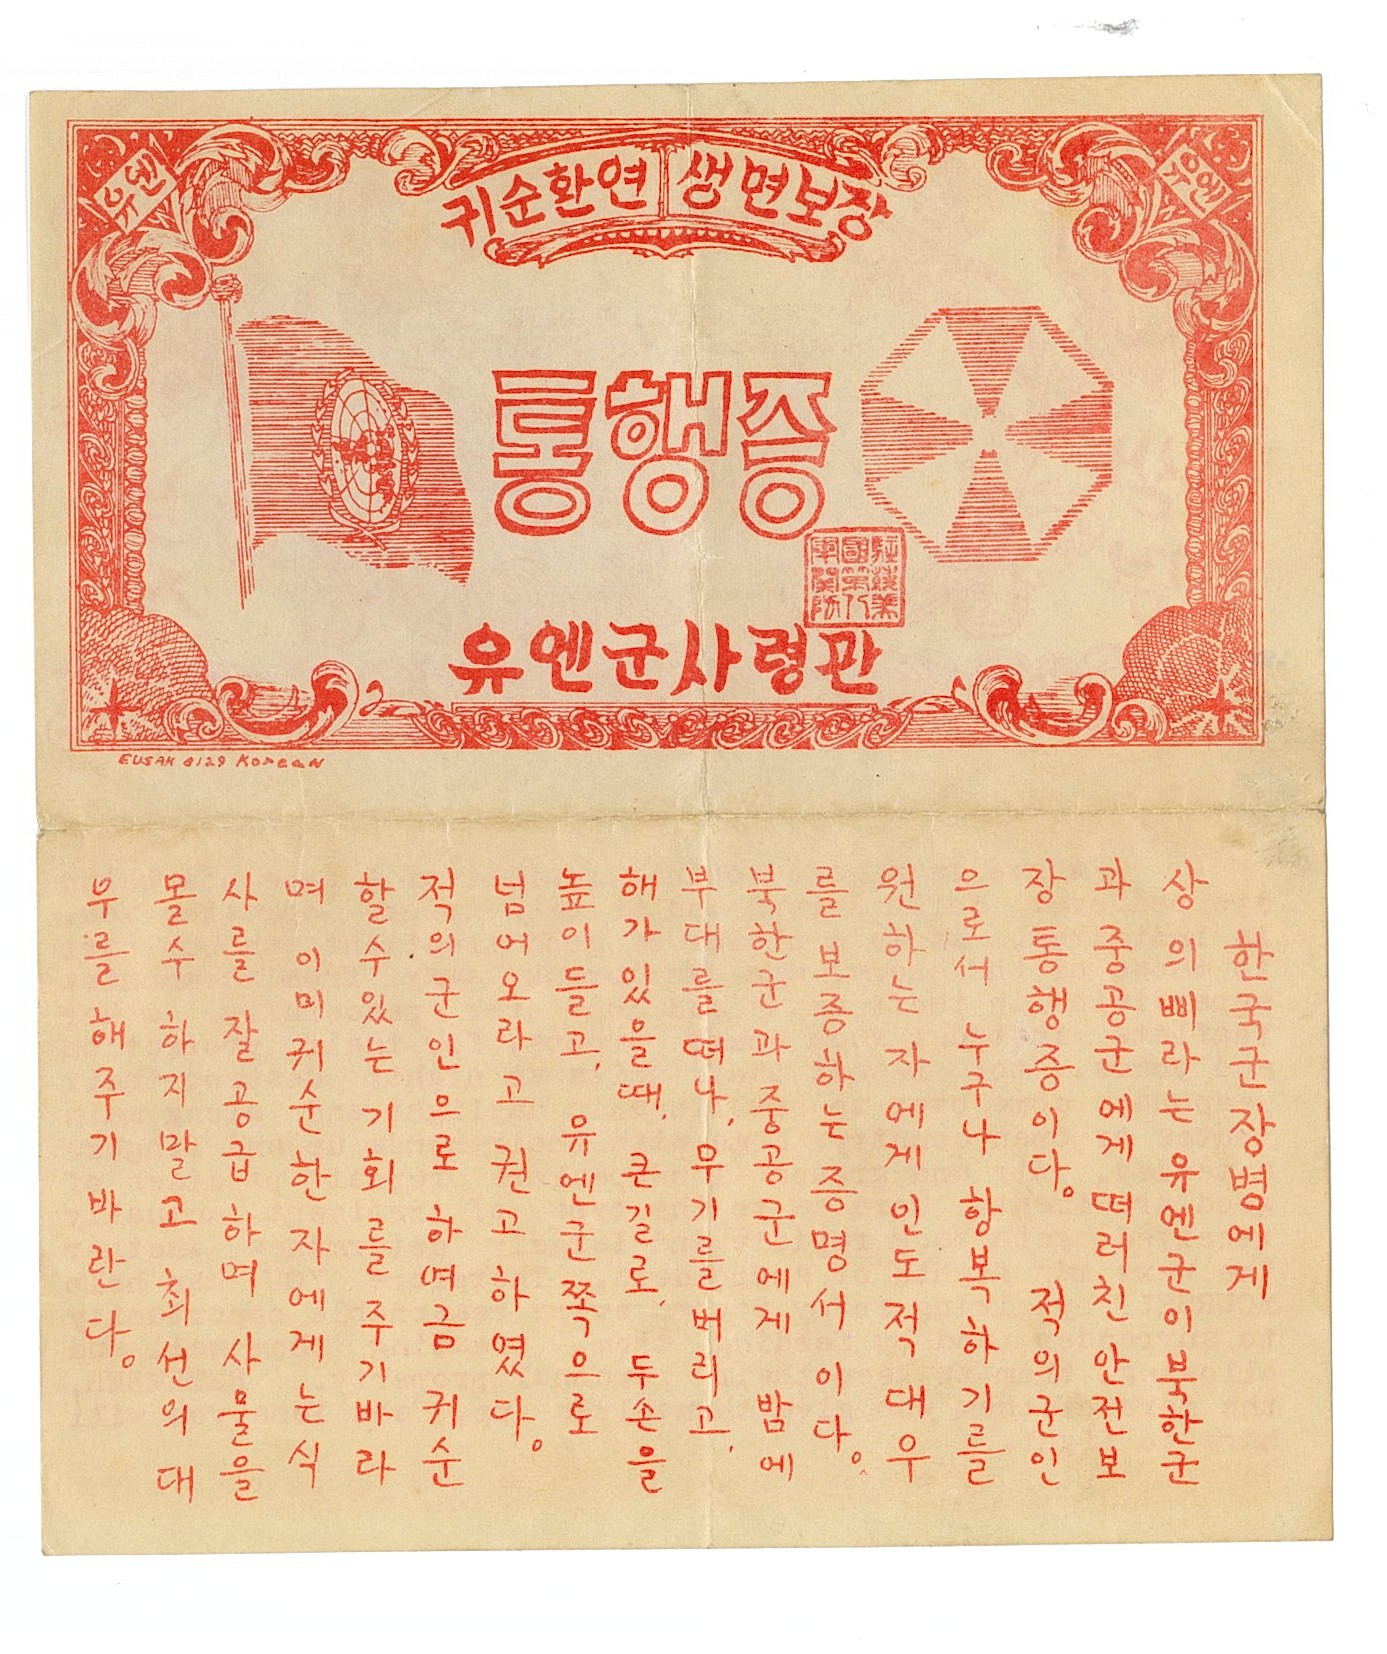 유엔
귀순환연 생면보장
유엔
통행증
駐韓美
國第八
軍関防
유엔군사령관
EUSAK 8129 Korean
한국군장병에게
상의삐라는유엔군이북한군
과중공군에게떠러친안전보
장통행증이다。 적의군인
으로서 누구나 항복하기를
원하는 자에게인도적대우
를 보증하는증명서이다。
북한군과중공군에게 밤에
부대를떠나, 무기를버리고,
해가있을때, 큰길로, 두손을
높이들고, 유엔군쪽으로
넘어오라고 권고하였다。
적의군인으로하여금 귀순
할수있는기회를주기바라
며 이미귀순한자에게는식
사를 잘공급하며 사물을
몰수하지말고 최선의대
우를해주기바란다。